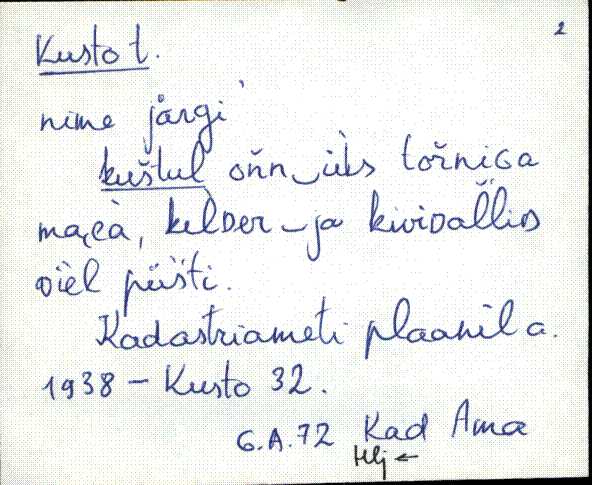 2
Kusto t.
nime järgi
kuštul oňn‿ǜks torňiGa
majjà, kelDer‿ja kiviDaĺĺiD
vièl pǜšti.
Kadastriameti plaanil a.
1938 – Kusto 32.
G.A.72 Kad Ama
Hlj ←